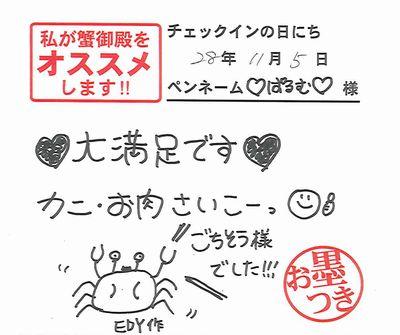 私が蟹御殿を
オススメ
します!!
チェックインの日にち
28年 11月 5日
ペンネーム♡ぱるむ♡ 様
♥大満足です♥
カニ・お肉さいこーっ
ごちそう様
でした!!!
EDY作
お墨つき